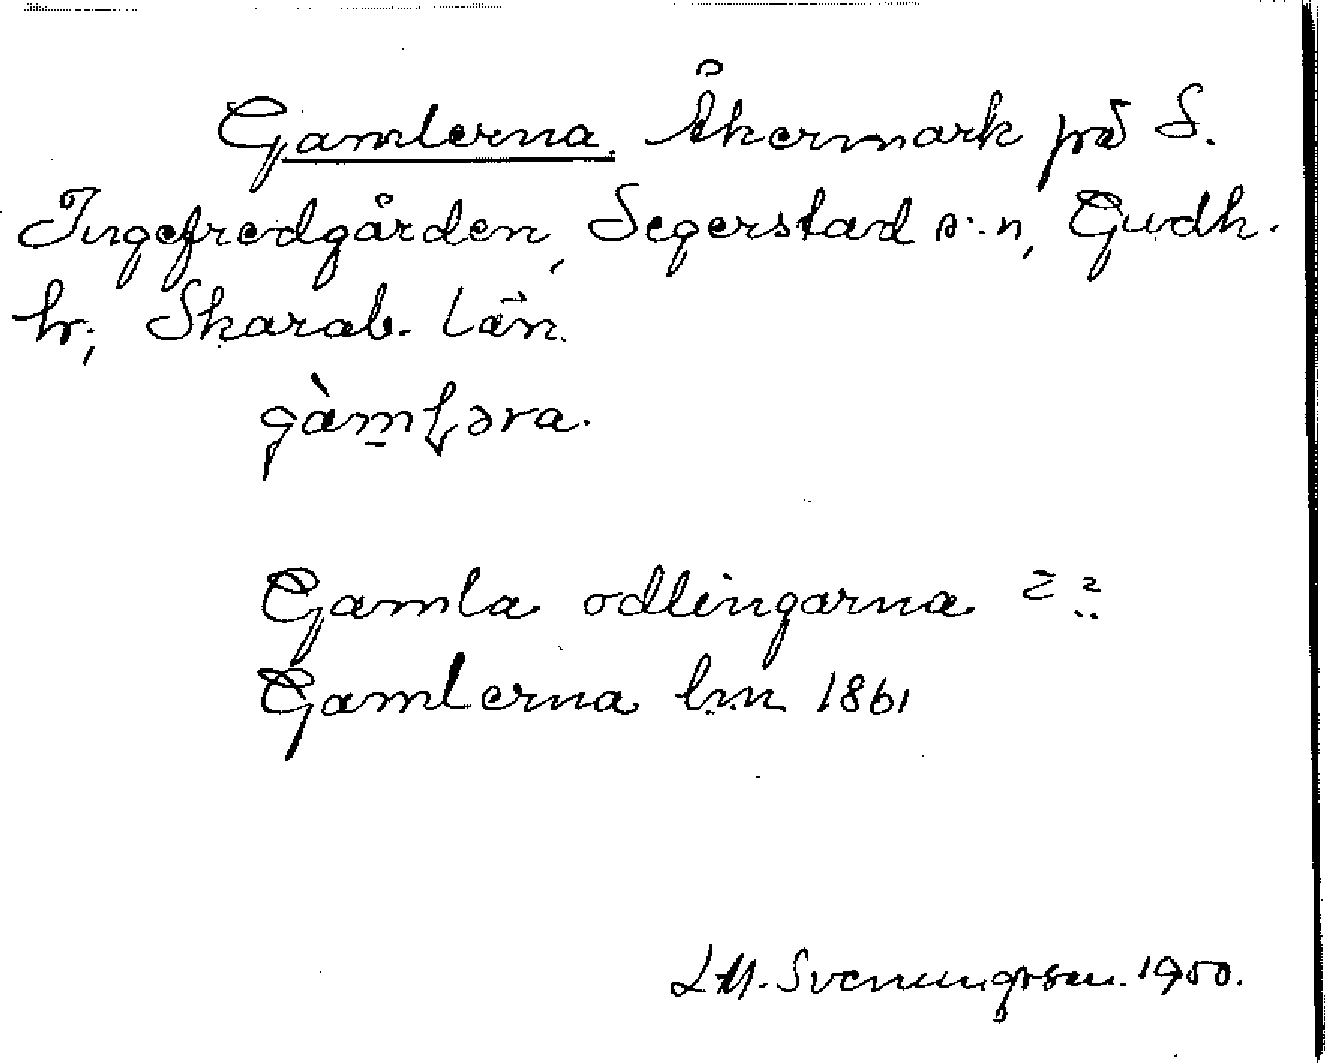 Gamlerna. Åkermark på S.
Ingefredgården, Segerstad s:n, Gudh.
hr; Skarab. län.
gàm̲ꞎəra.
Gamla odlingarna = ?
Gamlerna lm 1861
LM. Svenungsson. 1950.